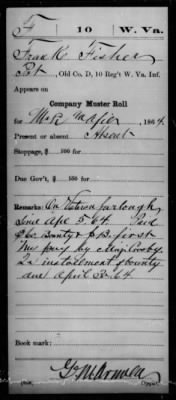 F 10 W. Va.
Frank Fisher
Pvt, Old Co. D, 10 Reg't W. Va. Inf.
Appears on
Company Muster Roll
for Mch & Apr, 1864
Present or absent Absent
Stoppage, $ 100 for
Due Gov't, $ 100 for
Remarks: On Veteran furlough
since Apr 5. 64. Paid
$60 Bounty & first
Mo pay by Maj Cowby.
2d instalment of bounty
due April 3 64
Book mark:
Copyist.